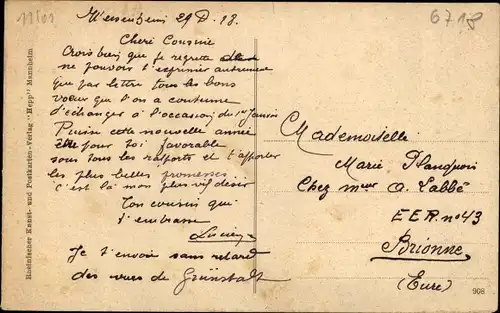 11101
6718
Wessenheim 29 D. 18.
Chère Cousine
Crois bien que je regrette de
ne pouvoir t'exprimer autrement
que par lettre tous les bons
voeux que l'on a coutume
d'échanger à l'occasion du 1er Janvier
Puisse cette nouvelle année
être pour toi favorable
sous tous les rapports et t'apporter
les plus belles promesses
c'est là mon plus vif désir
Ton cousin qui
t'embrasse
Lucien
Je t'envoie sans retard
des vues de Grünstadt
Mademoiselle
Marie Planquois
Chez Mme A. Labbé
E E R. no 43
Brionne
(Eure)
908
Rheinischer Kunst- und Postkarten-Verlag "Hepp" Mannheim